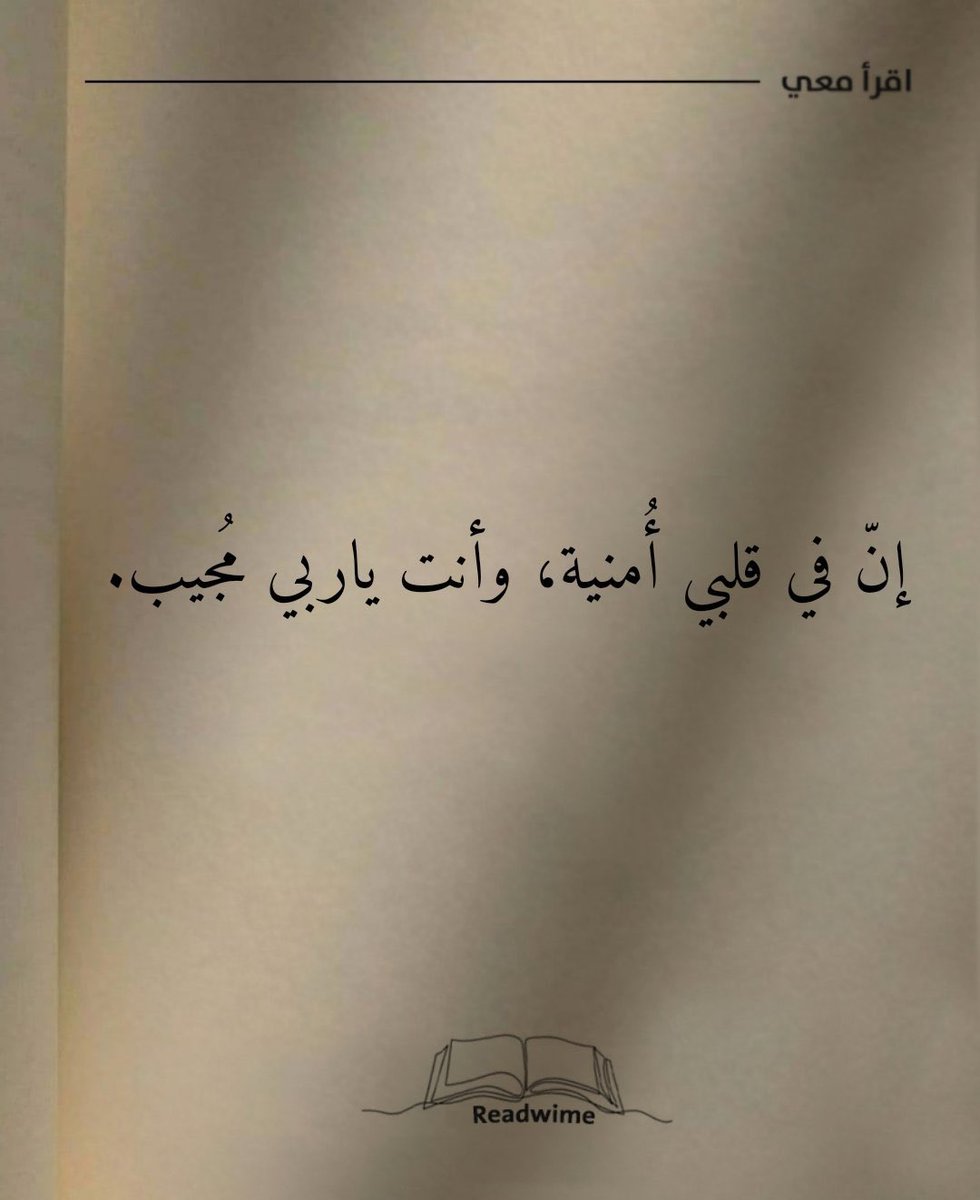 اقرأ معي
إنّ في قلبي أُمنية، وأنت ياربي مُجيب.
Readwime